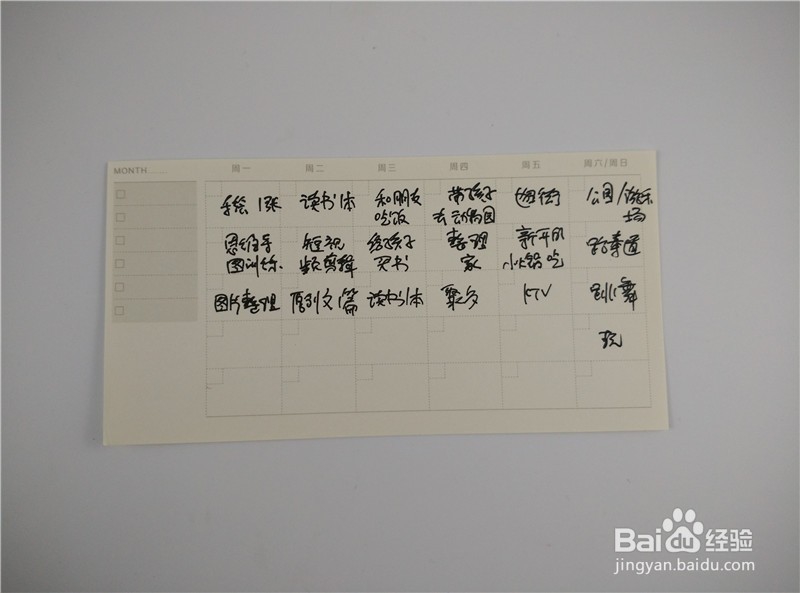 MONTH
周一 周二 周三 周四 周五 周六/周日
手绘1张 读书1本 和朋友 带孩子 逛街 公园/游乐
吃饭 去动物园 场
思维导 短视 给孩子 整理 新开的 跆拳道
图训练 频剪辑 买书 家 小火锅吃
图片整理 原创文1篇 读书1本 聚会 KTV 跳舞
玩
Baidu经验
jingyan.baidu.com